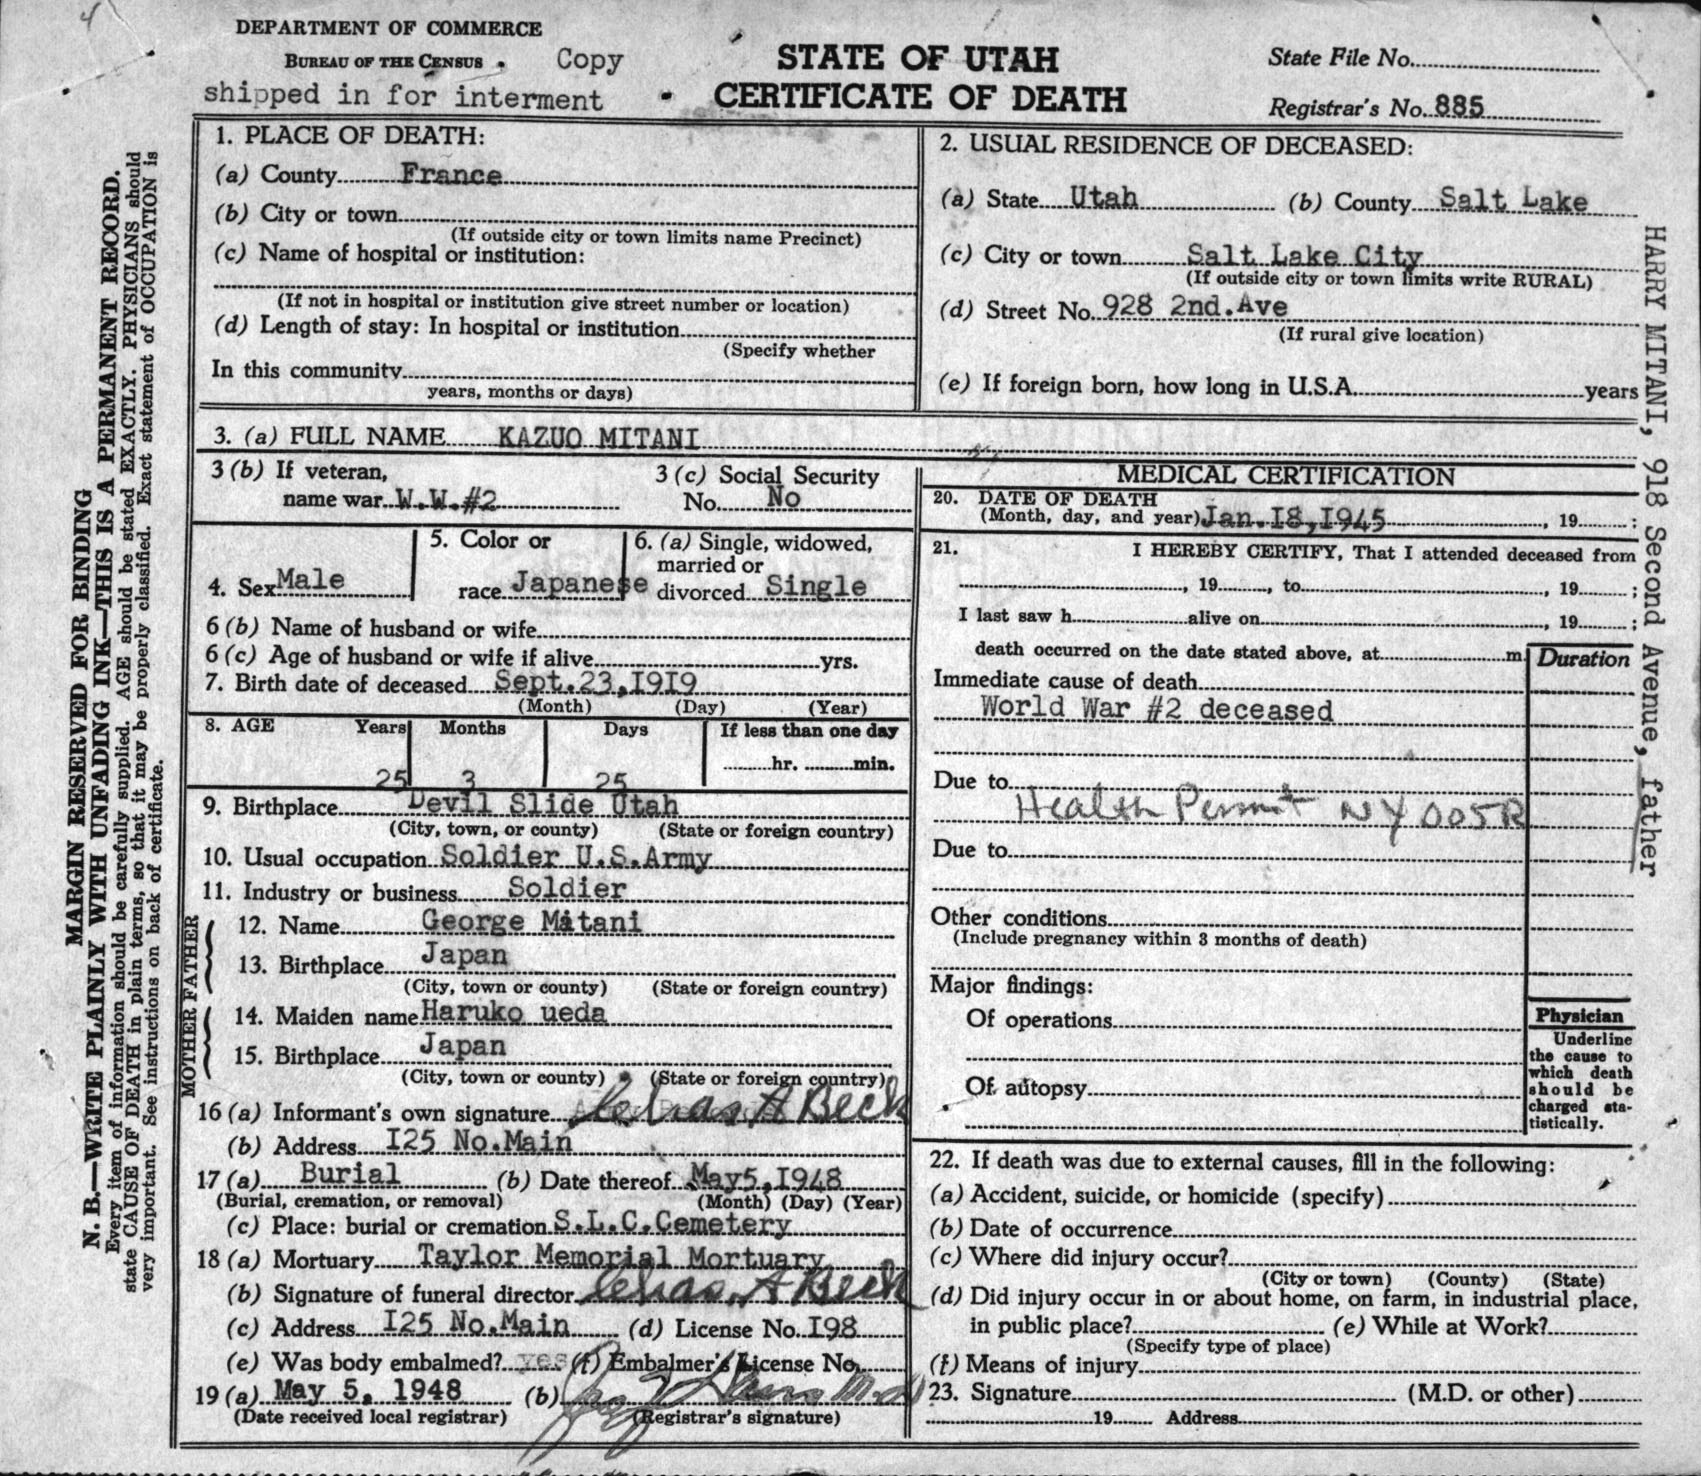 4
DEPARTMENT OF COMMERCE
BUREAU OF THE CENSUS
Copy
shipped in for interment
STATE OF UTAH
CERTIFICATE OF DEATH
State File No.
Registrar's No. 885
1. PLACE OF DEATH:
(a) County France
(b) City or town
(If outside city or town limits name Precinct)
(c) Name of hospital or institution:
(If not in hospital or institution give street number or location)
(d) Length of stay: In hospital or institution
(Specify whether
In this community
years, months or days)
2. USUAL RESIDENCE OF DECEASED:
(a) State Utah (b) County Salt Lake
(c) City or town Salt Lake City
(If outside city or town limits write RURAL)
(d) Street No. 928 2nd.Ave
(If rural give location)
(e) If foreign born, how long in U.S.A. years
3. (a) FULL NAME KAZUO MITANI
3 (b) If veteran,
name war W.W.#2
3 (c) Social Security
No. No
4. Sex Male
5. Color or
race Japanese
6. (a) Single, widowed,
married or
divorced Single
6 (b) Name of husband or wife
6 (c) Age of husband or wife if alive yrs.
7. Birth date of deceased Sept.23,I9I9
(Month) (Day) (Year)
8. AGE Years Months Days If less than one day
25 3 25 hr. min.
9. Birthplace Devil Slide Utah
(City, town, or county) (State or foreign country)
10. Usual occupation Soldier U.S.Army
11. Industry or business Soldier
FATHER
12. Name George Mitani
13. Birthplace Japan
(City, town or county) (State or foreign country)
MOTHER
14. Maiden name Haruko ueda
15. Birthplace Japan
(City, town or county) (State or foreign country)
16 (a) Informant's own signature Chas. A Beck
(b) Address I25 No.Main
17 (a) Burial (b) Date thereof May5,I948
(Burial, cremation, or removal) (Month) (Day) (Year)
(c) Place: burial or cremation S.L.C.Cemetery
18 (a) Mortuary Taylor Memorial Mortuary
(b) Signature of funeral director Chas. A Beck
(c) Address I25 No.Main (d) License No. I98
(e) Was body embalmed? yes (f) Embalmer's License No.
19 (a) May 5, 1948 (b) M.D.
(Date received local registrar) (Registrar's signature)
MEDICAL CERTIFICATION
20. DATE OF DEATH
(Month, day, and year) Jan.I8,I945, 19 ;
21. I HEREBY CERTIFY, That I attended deceased from
, 19 , to , 19 ;
I last saw h alive on , 19 ;
death occurred on the date stated above, at m.
Duration
Immediate cause of death
World War #2 deceased
Due to
Health Permit NY 005R
Due to
Other conditions
(Include pregnancy within 3 months of death)
Major findings:
Of operations
Of autopsy
Physician
Underline
the cause to
which death
should be
charged sta-
tistically.
22. If death was due to external causes, fill in the following:
(a) Accident, suicide, or homicide (specify)
(b) Date of occurrence
(c) Where did injury occur?
(City or town) (County) (State)
(d) Did injury occur in or about home, on farm, in industrial place,
in public place? (e) While at Work?
(Specify type of place)
(f) Means of injury
23. Signature (M.D. or other)
19 Address
HARRY MITANI, 918 Second Avenue, father
MARGIN RESERVED FOR BINDING
N. B.—WRITE PLAINLY WITH UNFADING INK—THIS IS A PERMANENT RECORD.
Every item of information should be carefully supplied. AGE should be stated EXACTLY. PHYSICIANS should
state CAUSE OF DEATH in plain terms, so that it may be properly classified. Exact statement of OCCUPATION is
very important. See instructions on back of certificate.